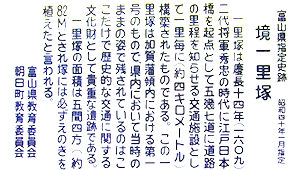 富山県指定史跡
境一里塚
昭和四十年一月指定
一里塚は慶長十四年(一六〇九)
二代将軍秀忠の時代に江戸日本
橋を起点として五畿七道に道路
の里程を知らせる交通施設とし
て一里毎に(約四キロメートル)
構築されたものである。この一
里塚は加賀藩領内における第一
号のもので県内において当時の
ままの姿で残されているのはこ
こだけで歴史的な交通に関する
文化財として貴重な遺跡である。
一里塚の面積は五間四方(約
82㎡とされ塚には必ずえのきを
植えたと言われる。
富山県教育委員会
朝日町教育委員会